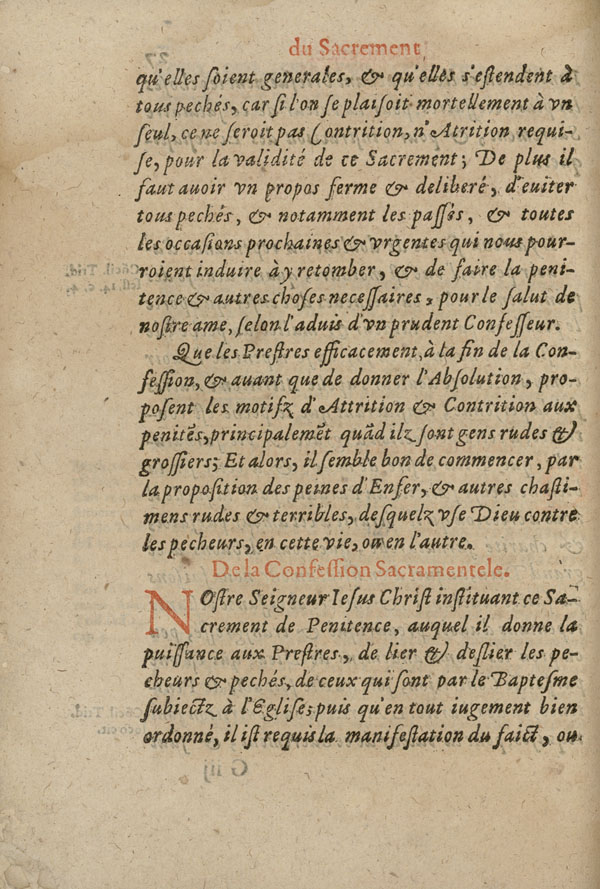 du Sacrement,
qu'elles ſoient generales, & qu'elles s'eſtendent à
tous pechés, car ſi l'on ſe plaiſoit mortellement à vn
ſeul, ce ne ſeroit pas Contrition, n'Atrition requi-
ſe, pour la validité de ce Sacrement; De plus il
faut auoir vn propos ferme & deliberé, d'euiter
tous pechés, & notamment les paſſés, & toutes
les occaſions prochaines & vrgentes qui nous pour-
roient induire à y retomber, & de faire la peni-
tence & autres choſes neceſſaires, pour le ſalut de
noſtre ame, ſelon l'aduis d'vn prudent Confeſſeur.
Que les Preſtres efficacement, à la fin de la Con-
feſſion, & auant que de donner l'Abſolution, pro-
poſent les motifz d'Attrition & Contrition aux
penitẽs, principalemẽt quãd ilz ſont gens rudes &
groſſiers; Et alors, il ſemble bon de commencer, par
la propoſition des peines d'Enfer, & autres chaſti-
mens rudes & terribles, deſquelz vſe Dieu contre
les pecheurs, en cette vie, ou en l'autre.
De la Confeſſion Sacramentele.
NOſtre Seigneur Ieſus Chriſt inſtituant ce Sa-
crement de Penitence, auquel il donne la
puiſſance aux Preſtres, de lier & deſlier les pe-
cheurs & pechés, de ceux qui ſont par le Bapteſme
ſubiectz à l'Egliſe; puis qu'en tout iugement bien
ordonné, il iſt requis la manifeſtation du faict, ou